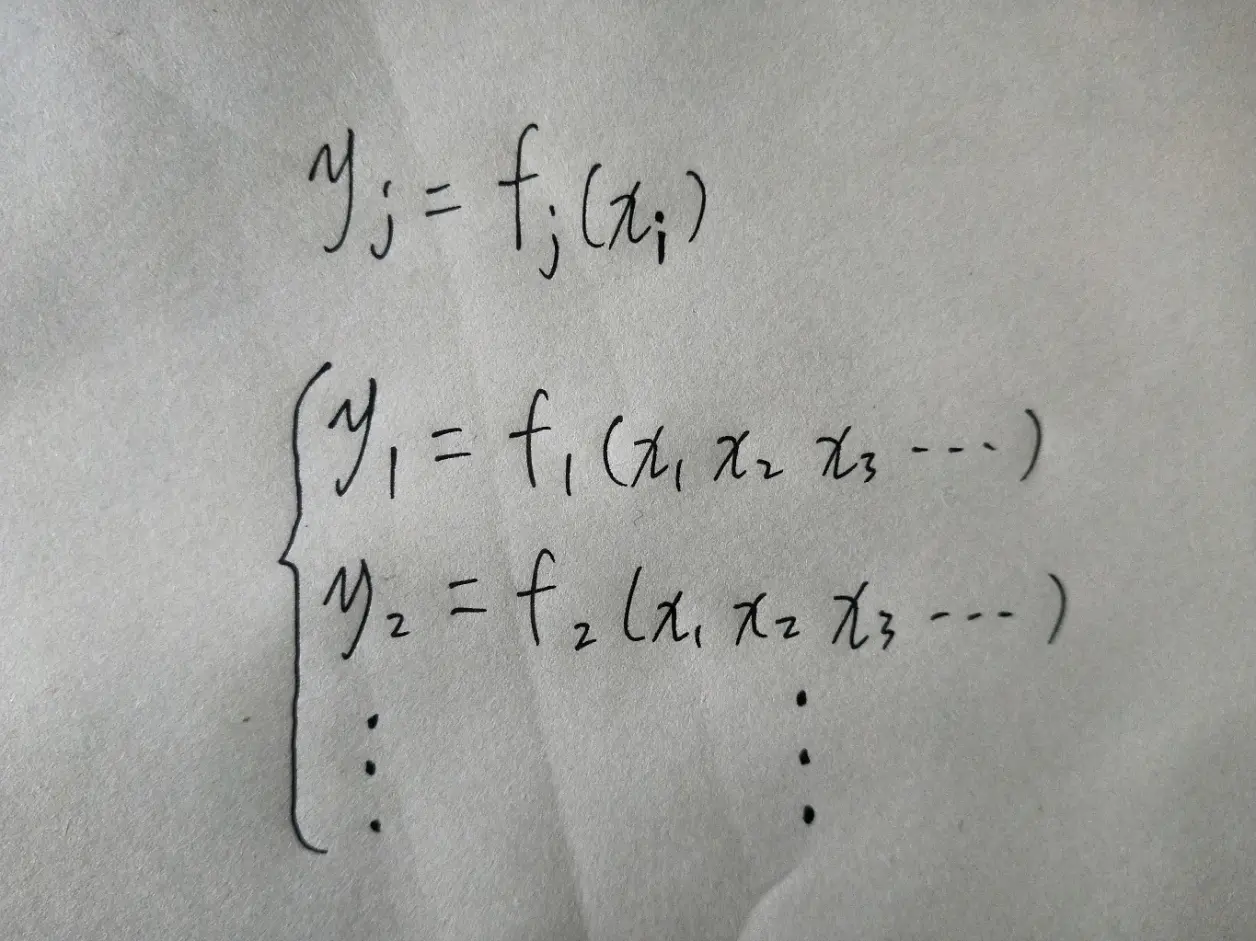 y_j = f_j(x_i)
y_1 = f_1(x_1 x_2 x_3 ---)
y_2 = f_2(x_1 x_2 x_3 ---)
⋮ ⋮